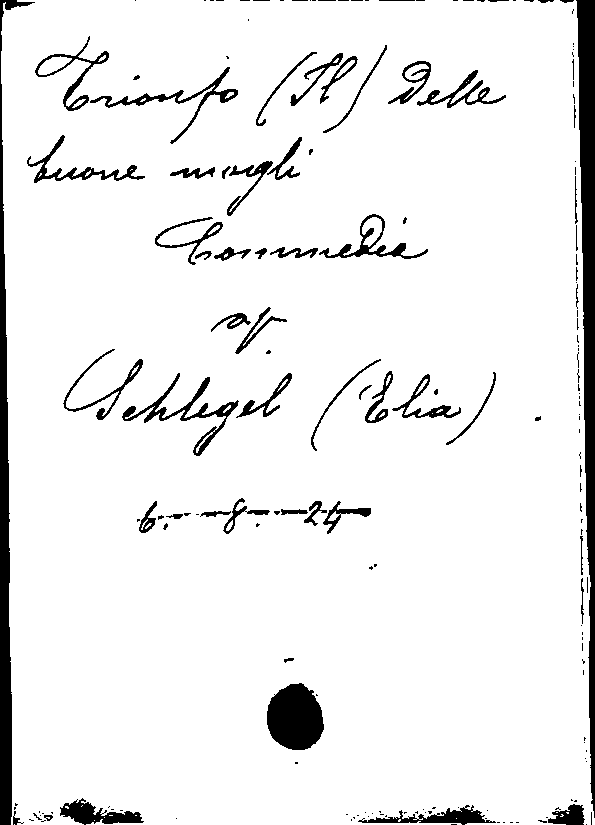 Trionfo (Il) Delle
buone mogli
Commedia
af
Schlegel (Elia) .
6. 8. 24